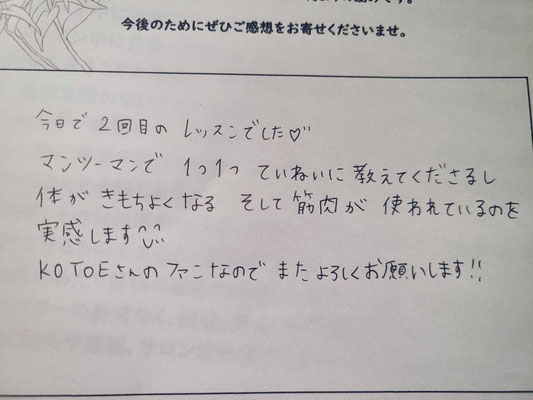 今後のためにぜひご感想をお寄せくださいませ。
今日で 2回目の レッスンでした♡
マンツーマンで 1つ1つ ていねいに 教えてくださるし
体が きもちよくなる そして 筋肉が 使われているのを
実感します
KOTOEさんの ファンなので また よろしくお願いします!!